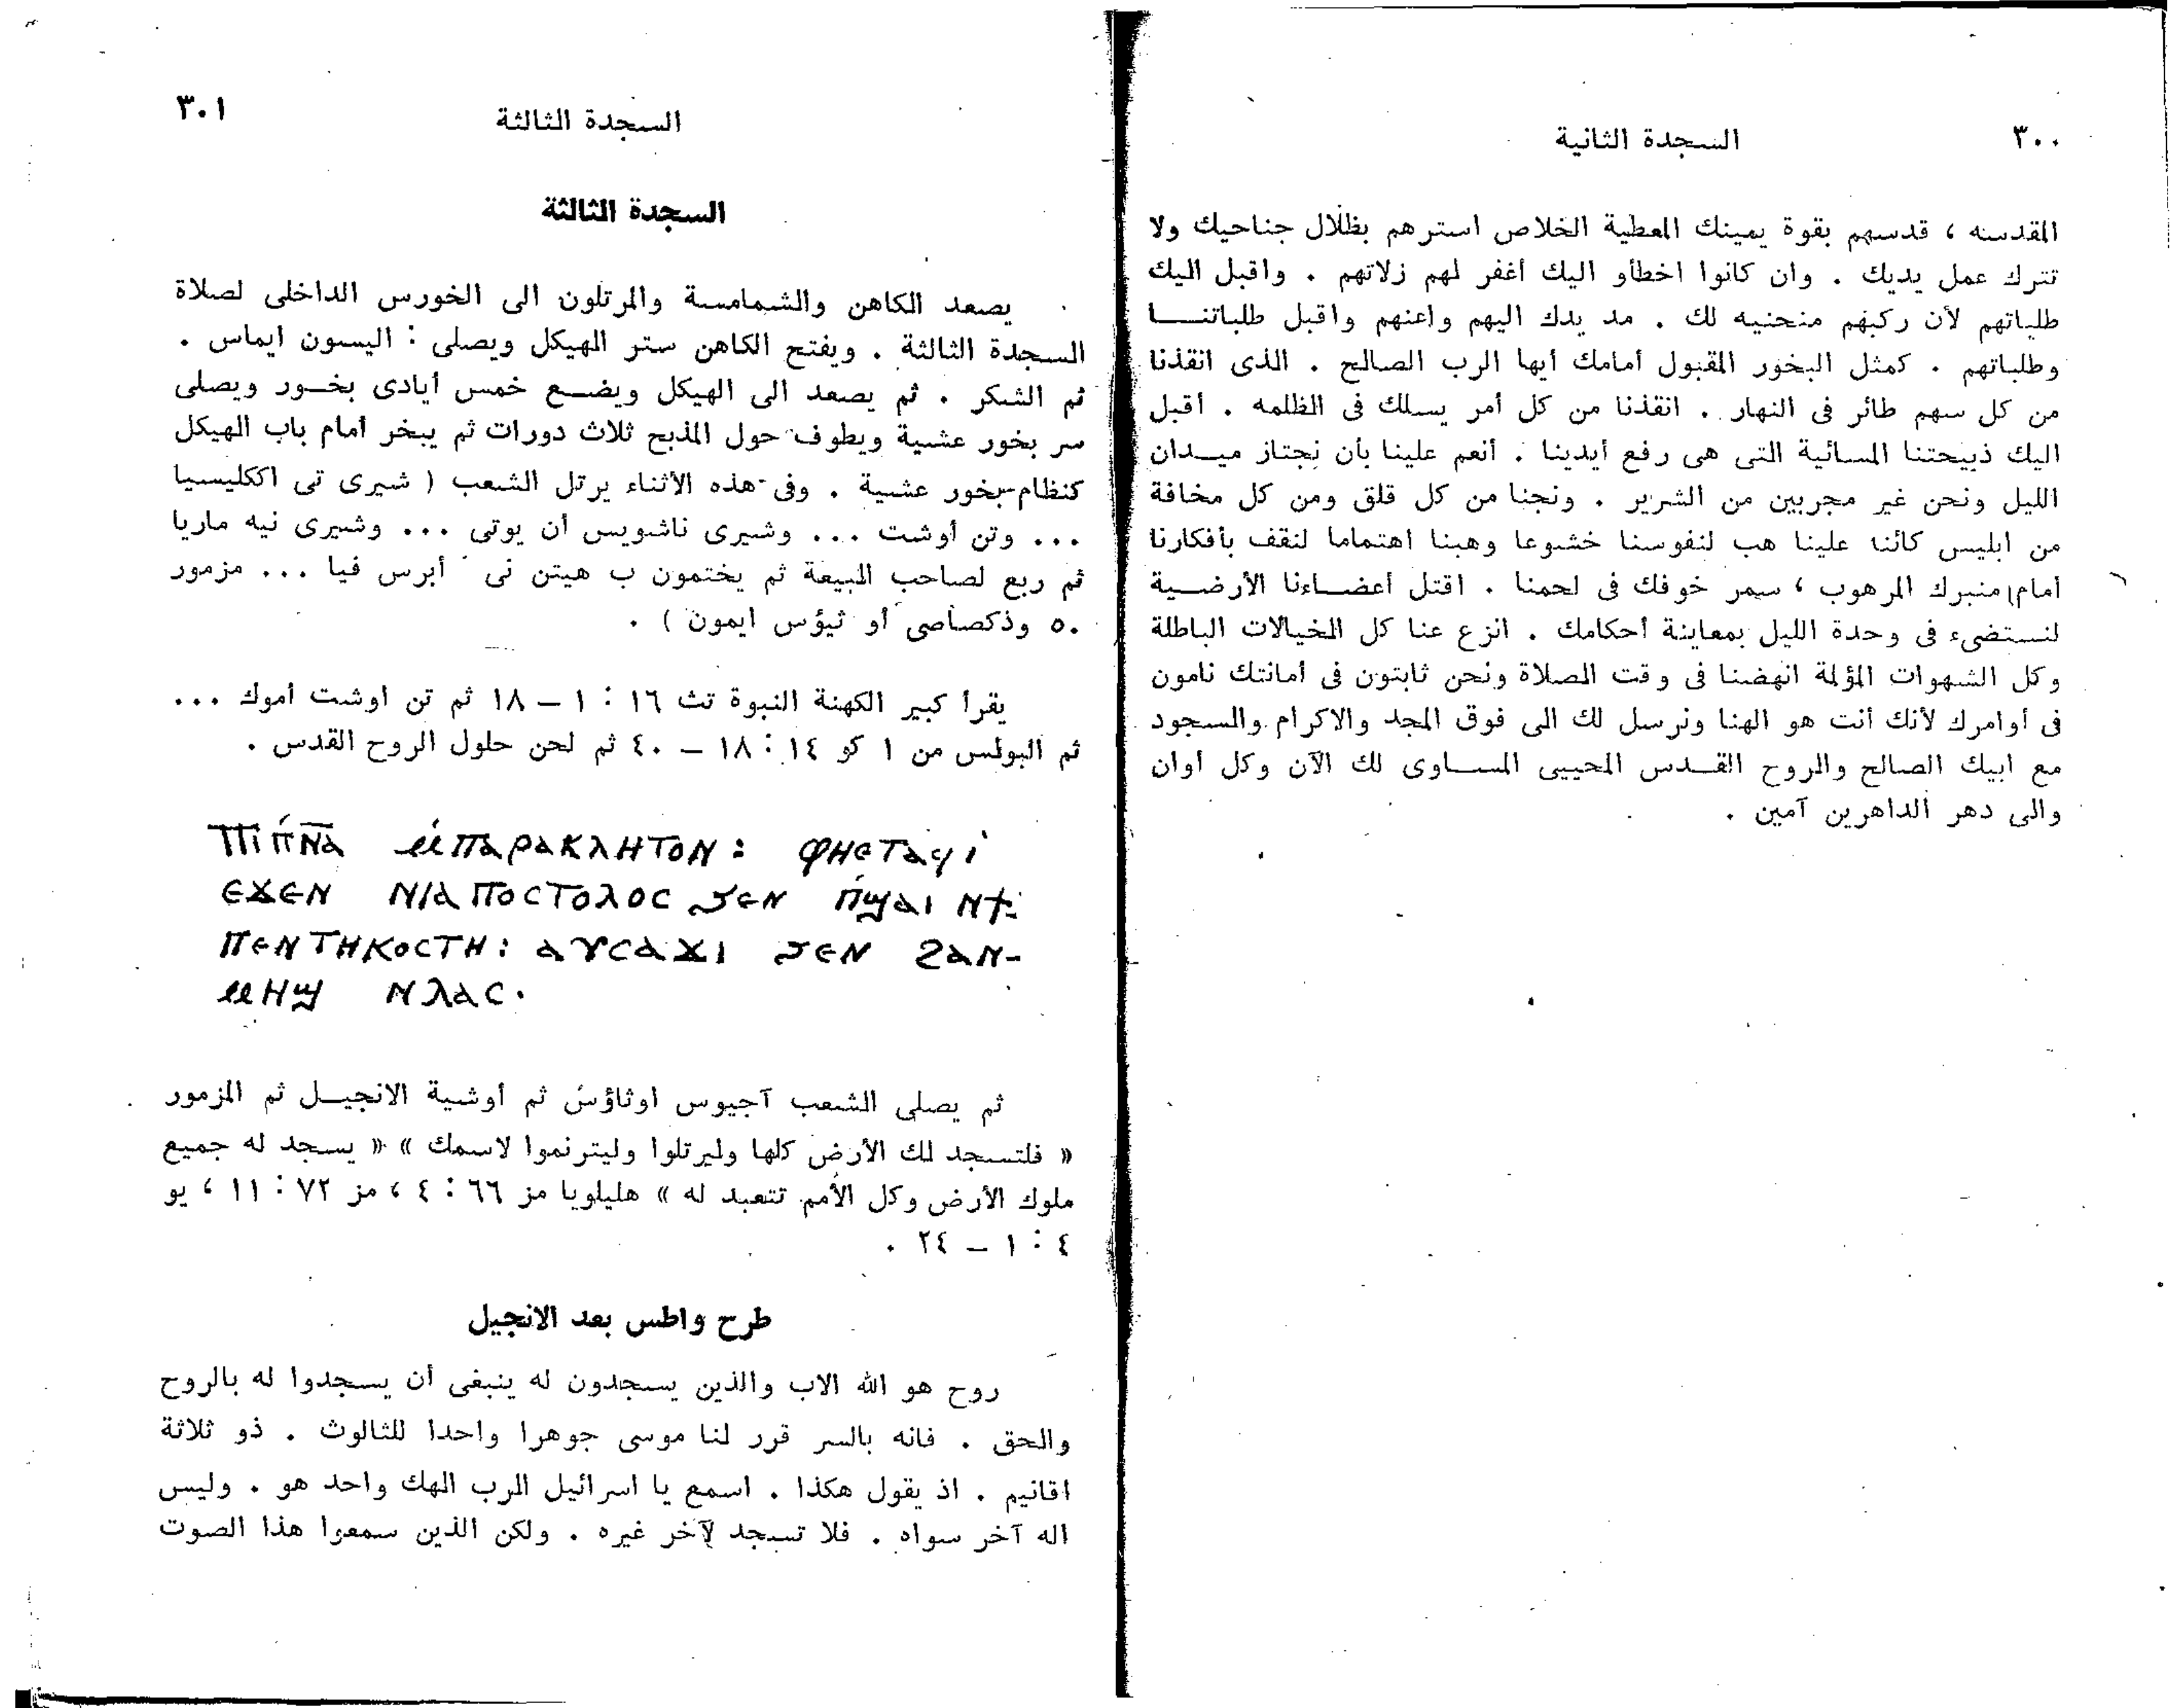 ٣٠٠
السجدة الثانية
المقدسه ، قدسهم بقوة يمينك المعطية الخلاص استرهم بظلال جناحيك ولا
تترك عمل يديك . وان كانوا اخطأو اليك أغفر لهم زلاتهم . واقبل اليك
طلباتهم لأن ركبهم منحنيه لك . مد يدك اليهم واعنهم واقبل طلباتنا
وطلباتهم . كمثل البخور المقبول أمامك أيها الرب الصالح . الذى انقذنا
من كل سهم طائر فى النهار . انقذنا من كل أمر يسلك فى الظلمه . أقبل
اليك ذبيحتنا المسائية التى هى رفع أيدينا . أنعم علينا بأن نجتاز ميدان
الليل ونحن غير مجربين من الشرير . ونجنا من كل قلق ومن كل مخافة
من ابليس كائنا علينا هب لنفوسنا خشوعا وهبنا اهتماما لنقف بأفكارنا
أمام منبرك المرهوب ، سمر خوفك فى لحمنا . اقتل أعضاءنا الأرضية
لنستضىء فى وحدة الليل بمعاينة أحكامك . انزع عنا كل الخيالات الباطلة
وكل الشهوات المؤلمة انهضنا فى وقت الصلاة ونحن ثابتون فى أمانتك نامون
فى أوامرك لأنك أنت هو الهنا ونرسل لك الى فوق المجد والاكرام والسجود
مع ابيك الصالح والروح القدس المحيى المساوى لك الآن وكل أوان
والى دهر الداهرين آمين .
السجدة الثالثة
٣٠١
السجدة الثالثة
يصعد الكاهن والشمامسة والمرتلون الى الخورس الداخلى لصلاة
السجدة الثالثة . ويفتح الكاهن ستر الهيكل ويصلى : اليسون ايماس .
ثم الشكر . ثم يصعد الى الهيكل ويضع خمس أيادى بخور ويصلى
سر بخور عشية ويطوف حول المذبح ثلاث دورات ثم يبخر أمام باب الهيكل
كنظام بخور عشية . وفى هذه الأثناء يرتل الشعب ( شيرى تى اككليسيا
... وتن أوشت ... وشيرى ناشويس أن يوتى ... وشيرى نيه ماريا
ثم ربع لصاحب البيعة ثم يختمون ب هيتن نى أبرس فيا ... مزمور
٥٠ وذكصاصى أو ثيؤس ايمون ) .
يقرأ كبير الكهنة النبوة تث ١٦ : ١ – ١٨ ثم تن اوشت أموك ...
ثم البولس من ١ كو ١٤ : ١٨ – ٤٠ ثم لحن حلول الروح القدس .
Ⲡⲓⲡ̀ⲛ̅ⲁ̅ ⲙ̀ⲡⲁⲣⲁⲕⲗⲏⲧⲟⲛ : ⲫⲏⲉⲧⲁϥⲓ̀
ⲉϫⲉⲛ ⲛⲓⲁⲡⲟⲥⲧⲟⲗⲟⲥ ϧⲉⲛ ⲡ̀ϣⲁⲓ ⲛϯ-
ⲡⲉⲛⲧⲏⲕⲟⲥⲧⲏ : ⲁⲩⲥⲁϫⲓ ϧⲉⲛ ϩⲁⲛ-
ⲙⲏϣ ⲛⲗⲁⲥ .
ثم يصلى الشعب آجيوس اوثاؤس ثم أوشية الانجيل ثم المزمور
« فلتسجد لك الأرض كلها وليرتلوا وليترنموا لاسمك » « يسجد له جميع
ملوك الأرض وكل الأمم تتعبد له » هليلويا مز ٦٦ : ٤ ، مز ٧٢ : ١١ ، يو
٤ : ١ – ٢٤ .
طرح واطس بعد الانجيل
روح هو الله الاب والذين يسجدون له ينبغى أن يسجدوا له بالروح
والحق . فانه بالسر قرر لنا موسى جوهرا واحدا للثالوث . ذو ثلاثة
اقانيم . اذ يقول هكذا . اسمع يا اسرائيل الرب الهك واحد هو . وليس
اله آخر سواه . فلا تسجد لآخر غيره . ولكن الذين سمعوا هذا الصوت